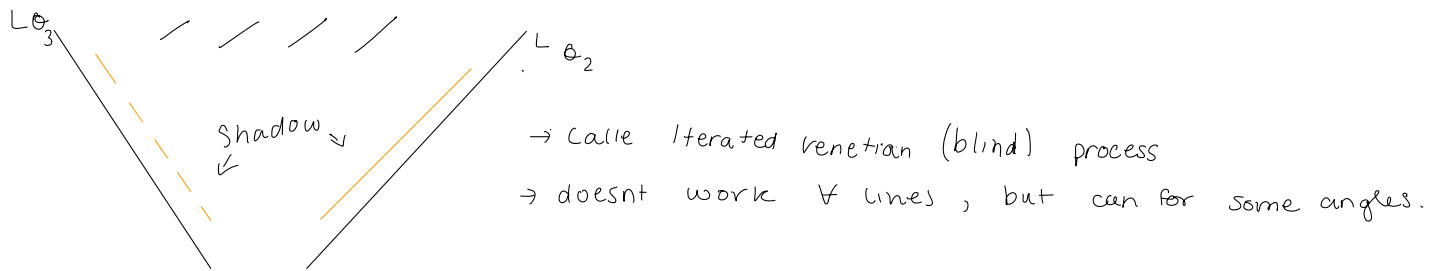 Lθ₃
L θ₂
Shadow
→ calle Iterated venetian (blind) process
→ doesnt work ∀ lines, but can for some angles.